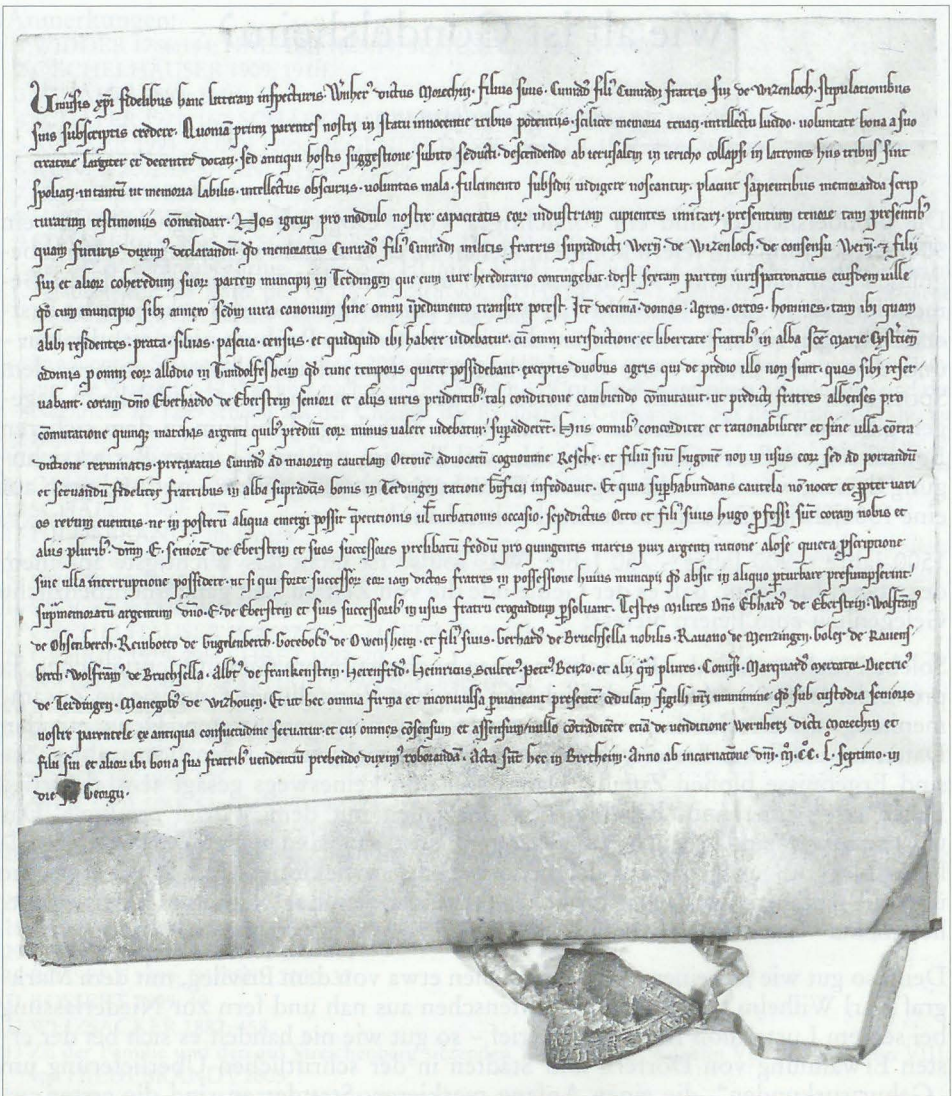 Universis xpi fidelibus hanc litteram inspecturis. Wernher' dictus Morechin. filius suus. Cunrad' fili' Cunradi fratris sui de Wizenloch. stipulationibus
suis subscriptis credere. Quoniam primi parentes nostri in statu innocentie tribus potentiis. scilicet memoria tenaci. intellectu lucido. voluntate bona a suo
creatore largiter et decenter dotati. sed antiqui hostis suggestione subito seducti. descendendo ab ierusalem in iericho collapsi in latrones hiis tribus sunt
spoliati. in tantum ut memoria labilis. intellectus obscurus. voluntas mala. fulcimento subsidii indigere noscantur. placuit sapientibus memoranda scrip
turarum testimoniis commendare. Nos igitur pro modulo nostre capacitatis eor industriam cupientes imitari. presentium tenore tam presentib'
quam futuris duximus declarandum. qd memoratus Cunrad' fili' Cunradi militis fratris supradicti Wern de Wizenloch. de consensu Wern. et filii
sui et alior coheredum suor partem municipii in Terdingen que eum iure hereditario contingebat. idest sextam partem iurispatronatus eiusdem ville
qd cum municipio sibi annexo sedm iura canonum sine omni ipedimento transire potest. Item decima. domos. agros. ortos. homines. tam ibi quam
alibi residentes. prata. silvas. pascua. census. et quidquid ibi habere videbatur. cum omni iurisdictione et libertate fratrib' in alba sce Marie Cysterien
ordinis p omni eor allodio in Tundolfesheim qd tunc temporis quiete possidebant. exceptis duobus agris qui de predio illo non sunt. quos sibi reser
vabant. coram dno Eberhardo de Eberstein seniori et aliis viris prudentib'. tali conditione cambiendo commutavit. ut predicti fratres albenses pro
commutatione quinque marchas argenti quib' predium eor minus valere videbatur. supadderent. Hiis omnib' concorditer et rationabiliter et sine ulla contra
dictione terminatis. prefatus Cunrad' ad maiorem cautelam Ottonem advocatum cognomine Resche. et filium suum hugonem non in usus eor sed ad portandum
et servandum fideliter fratribus in alba supradictis bonis in Terdingen ratione bnficii infeodavit. Et quia suphabundans cautela non nocet et propter vari
os rerum eventus. ne in posterum aliqua emergi possit ipetitionis vel turbationis occasio. sepedictus Otto et fili' suus hugo pfessi sunt coram nobis et
aliis plurib'. dnm. E. seniorem de Eberstein et suos successores prelibatum feodum pro quingentis marcis puri argenti ratione alose quieta pscriptione
sine ulla interruptione possidere. ut si qui forte successor eor iam dictos fratres in possessione huius municipii qd absit in aliquo pturbare presumpserint.
supmemoratum argentum dno. E. de Eberstein et suis successorib' in usus fratrum erogandum psolvant. Testes milites Dns Ebhard' de Eberstein. Wolfram'
de Ohsenberch. Reinbotto de Gugelenberch. Borebold' de Owensheim. et fili' suus. Gerhard' de Bruchsella nobilis. Ravano de Menzingen. boler de Ravens
berch. Wolfram' de Bruchsella. Alber' de frankenstein. Herenfrid'. Heinricus scultet'. Petr' Bonzo. et alii qm plures. Conversi. Marquard' mercator. Dietric'
de Terdingen. Manegold' de Wizhoven. Et ut hec omnia firma et inconvulsa pmaneant presentem cedulam sigilli nri munimine qd sub custodia senioris
nostre parentele ex antiqua consuetudine servatur. et cui omnes consensum et assensum. nullo contradicente etiam de venditione Wernheri dicti Morechin et
filii sui et alior ibi bona sua fratrib' vendentium prebendo duximus roborandam. Acta sunt hec in Bretheim. Anno ab incarnatione dni. M. CC. L. septimo. in
die Georgii.